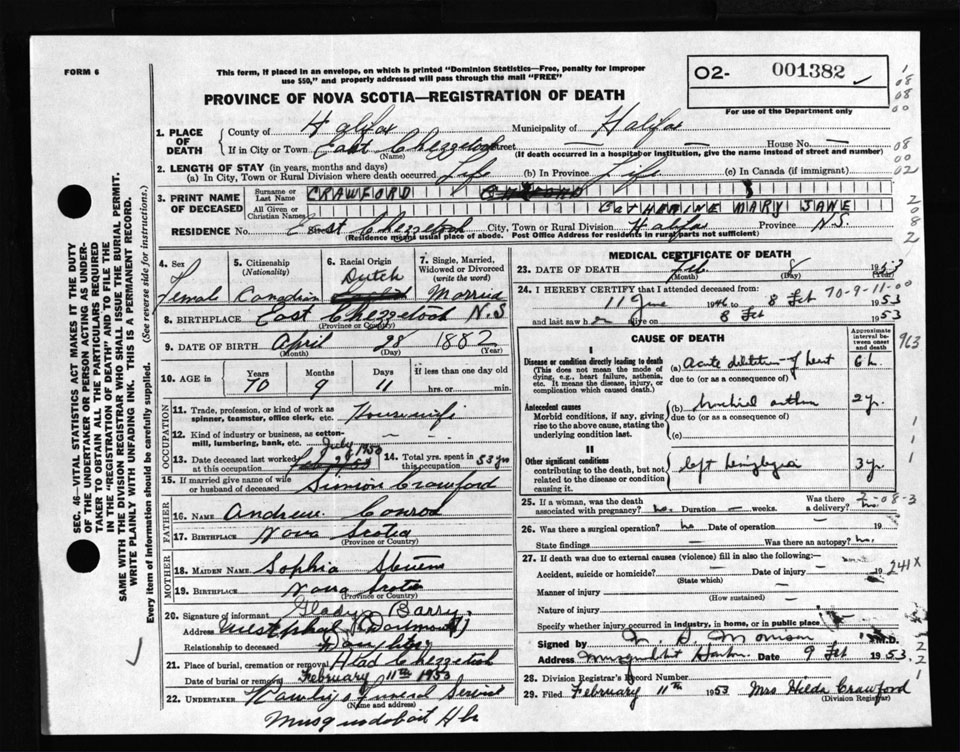 FORM 6
This form, if placed in an envelope, on which is printed "Dominion Statistics—Free, penalty for improper
use $50," and properly addressed will pass through the mail "FREE"
O2- 001382
For use of the Department only
PROVINCE OF NOVA SCOTIA—REGISTRATION OF DEATH
1. PLACE OF DEATH
County of Halifax Municipality of Halifax
If in City or Town East Chezzetcook Street — House No. —
(Name) (If death occurred in a hospital or institution, give the name instead of street and number)
2. LENGTH OF STAY (in years, months and days)
(a) In City, Town or Rural Division where death occurred Life (b) In Province Life (c) In Canada (if immigrant)
3. PRINT NAME OF DECEASED
Surname or Last Name CRAWFORD
All Given or Christian Names CATHERINE MARY JANE
RESIDENCE No. Street East Chezzetcook City, Town or Rural Division Halifax Province N.S.
(Residence means usual place of abode. Post Office Address for residents in rural parts not sufficient)
4. Sex Female
5. Citizenship (Nationality) Canadian
6. Racial Origin Dutch
7. Single, Married, Widowed or Divorced (write the word) Married
8. BIRTHPLACE East Chezzetcook N.S
(Province or Country)
9. DATE OF BIRTH April 28 1882
(Month) (Day) (Year)
10. AGE in Years 70 Months 9 Days 11 If less than one day old hrs. or min.
OCCUPATION
11. Trade, profession, or kind of work as spinner, teamster, office clerk, etc. Housewife
12. Kind of industry or business, as cotton-mill, lumbering, bank, etc. —
13. Date deceased last worked at this occupation July 1950
14. Total yrs. spent in this occupation 53 yrs
15. If married give name of wife or husband of deceased Simion Crawford
FATHER
16. NAME Andrew Conrod
17. BIRTHPLACE Nova Scotia
(Province or Country)
MOTHER
18. MAIDEN NAME Sophia
19. BIRTHPLACE Nova Scotia
(Province or Country)
20. Signature of informant Gladys Barry
Address Westphal (Dartmouth)
Relationship to deceased Daughter
21. Place of burial, cremation or removal Head Chezzetcook
Date of burial or removal February 11th 1953
22. UNDERTAKER Funeral Service
(Name and address)
Musquodoboit Hbr
MEDICAL CERTIFICATE OF DEATH
23. DATE OF DEATH Feb 8 1953
(Month) (Day)
24. I HEREBY CERTIFY that I attended deceased from:
11 June 1946 to 8 Feb 1953
70-9-11-00
and last saw her alive on 8 Feb 1953
CAUSE OF DEATH
Approximate interval between onset and death
963
I
Disease or condition directly leading to death
(This does not mean the mode of dying, e.g., heart failure, asthenia, etc. It means the disease, injury, or complication which caused death.)
(a) Acute dilitation of heart 6 h.
due to (or as a consequence of)
Antecedent causes
Morbid conditions, if any, giving rise to the above cause, stating the underlying condition last.
(b) bronchial asthma 2 yr.
due to (or as a consequence of)
(c)
II
Other significant conditions
contributing to the death, but not related to the disease or condition causing it.
left hemiplegia 3 yr
25. If a woman, was the death associated with pregnancy? no. Duration — weeks. Was there a delivery? no
26. Was there a surgical operation? no Date of operation — 19
State findings — Was there an autopsy? no.
27. If death was due to external causes (violence) fill in also the following:—
Accident, suicide or homicide? — Date of injury — 19
(State which)
241X
Manner of injury —
(How sustained)
Nature of injury
Specify whether injury occurred in industry, in home, or in public place
Signed by M.D.
Address Musquodoboit Harbour Date 9 Feb 1953.
28. Division Registrar's Record Number
29. Filed February 11th 1953 Mrs Hilda Crawford
(Division Registrar)
SEC. 46—VITAL STATISTICS ACT MAKES IT THE DUTY
OF THE UNDERTAKER OR PERSON ACTING AS UNDER-
TAKER TO OBTAIN ALL THE PARTICULARS REQUIRED
IN THE "REGISTRATION OF DEATH" AND TO FILE THE
SAME WITH THE DIVISION REGISTRAR WHO SHALL ISSUE THE BURIAL PERMIT.
WRITE PLAINLY WITH UNFADING INK. THIS IS A PERMANENT RECORD.
Every item of information should be carefully supplied. (See reverse side for instructions.)